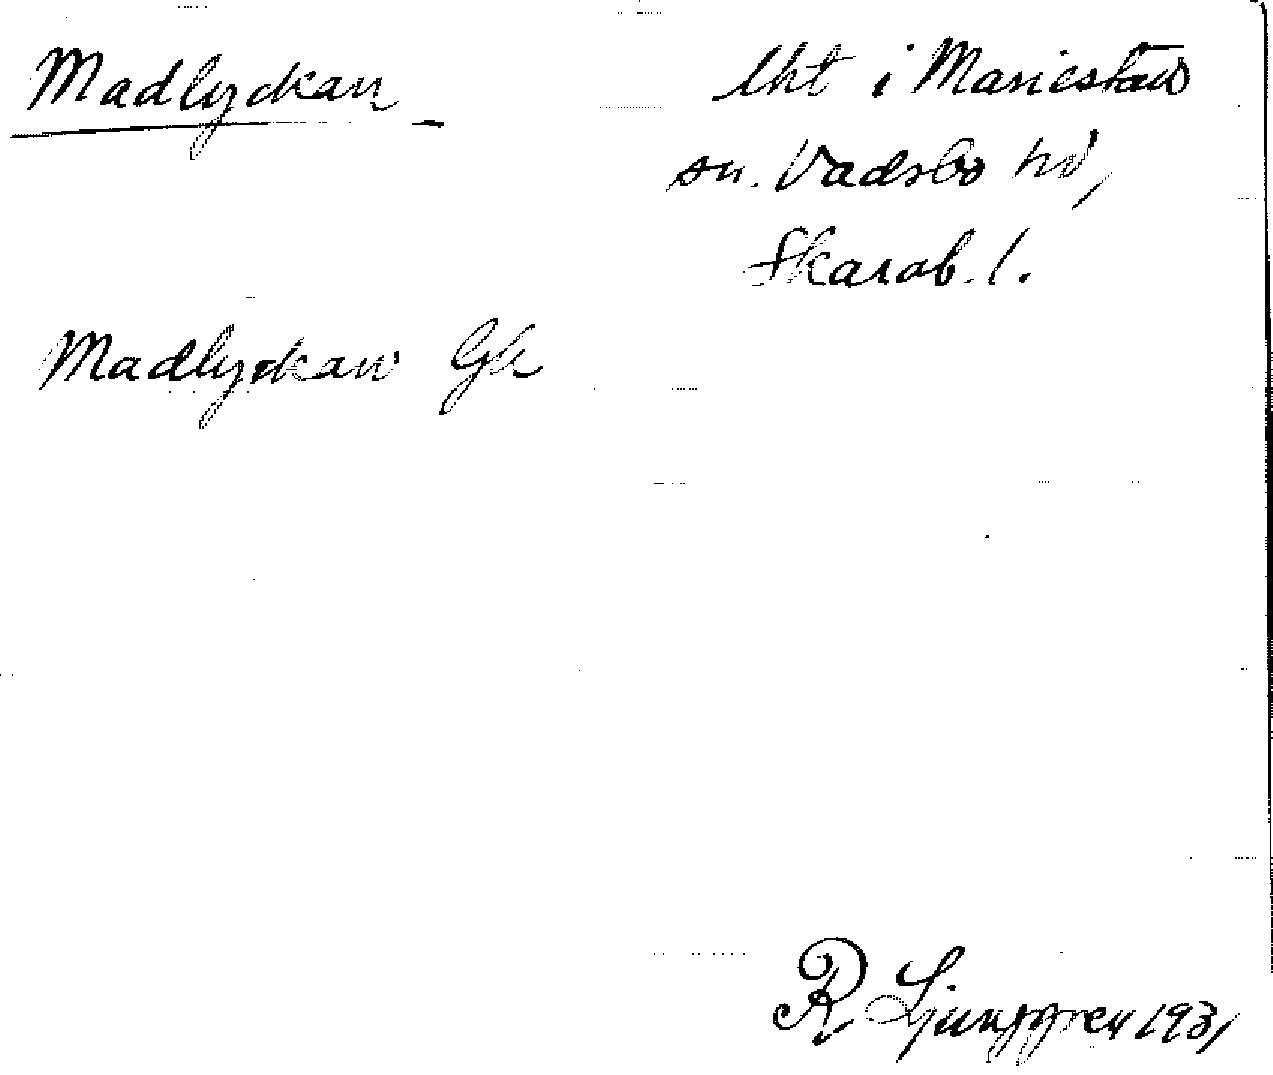 Madlyckan
lht i Mariestads
sn. Vadsbo hd,
Skarab. l.
Madlyckan Gk
R Ljunggren 1931